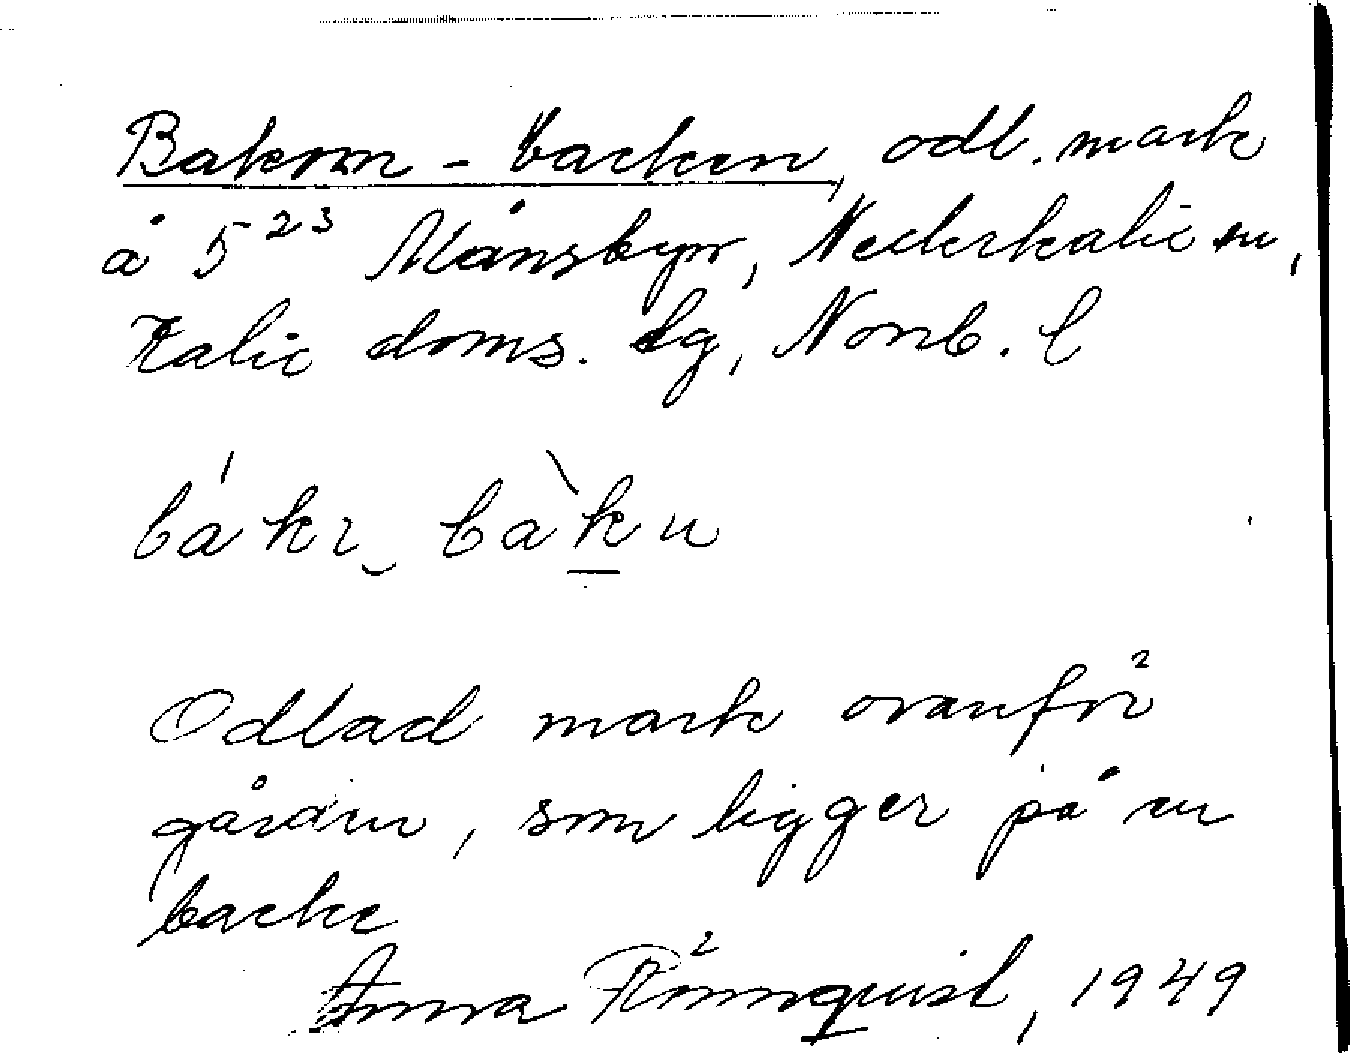 Bakom-backen, odl. mark
å 5²³ Månsbyn, Nederkalix sn,
Kalix doms. dg, Norrb. l
Odlad mark ovanför
gården, som ligger på en
backe
Anna Rönnquist, 1949